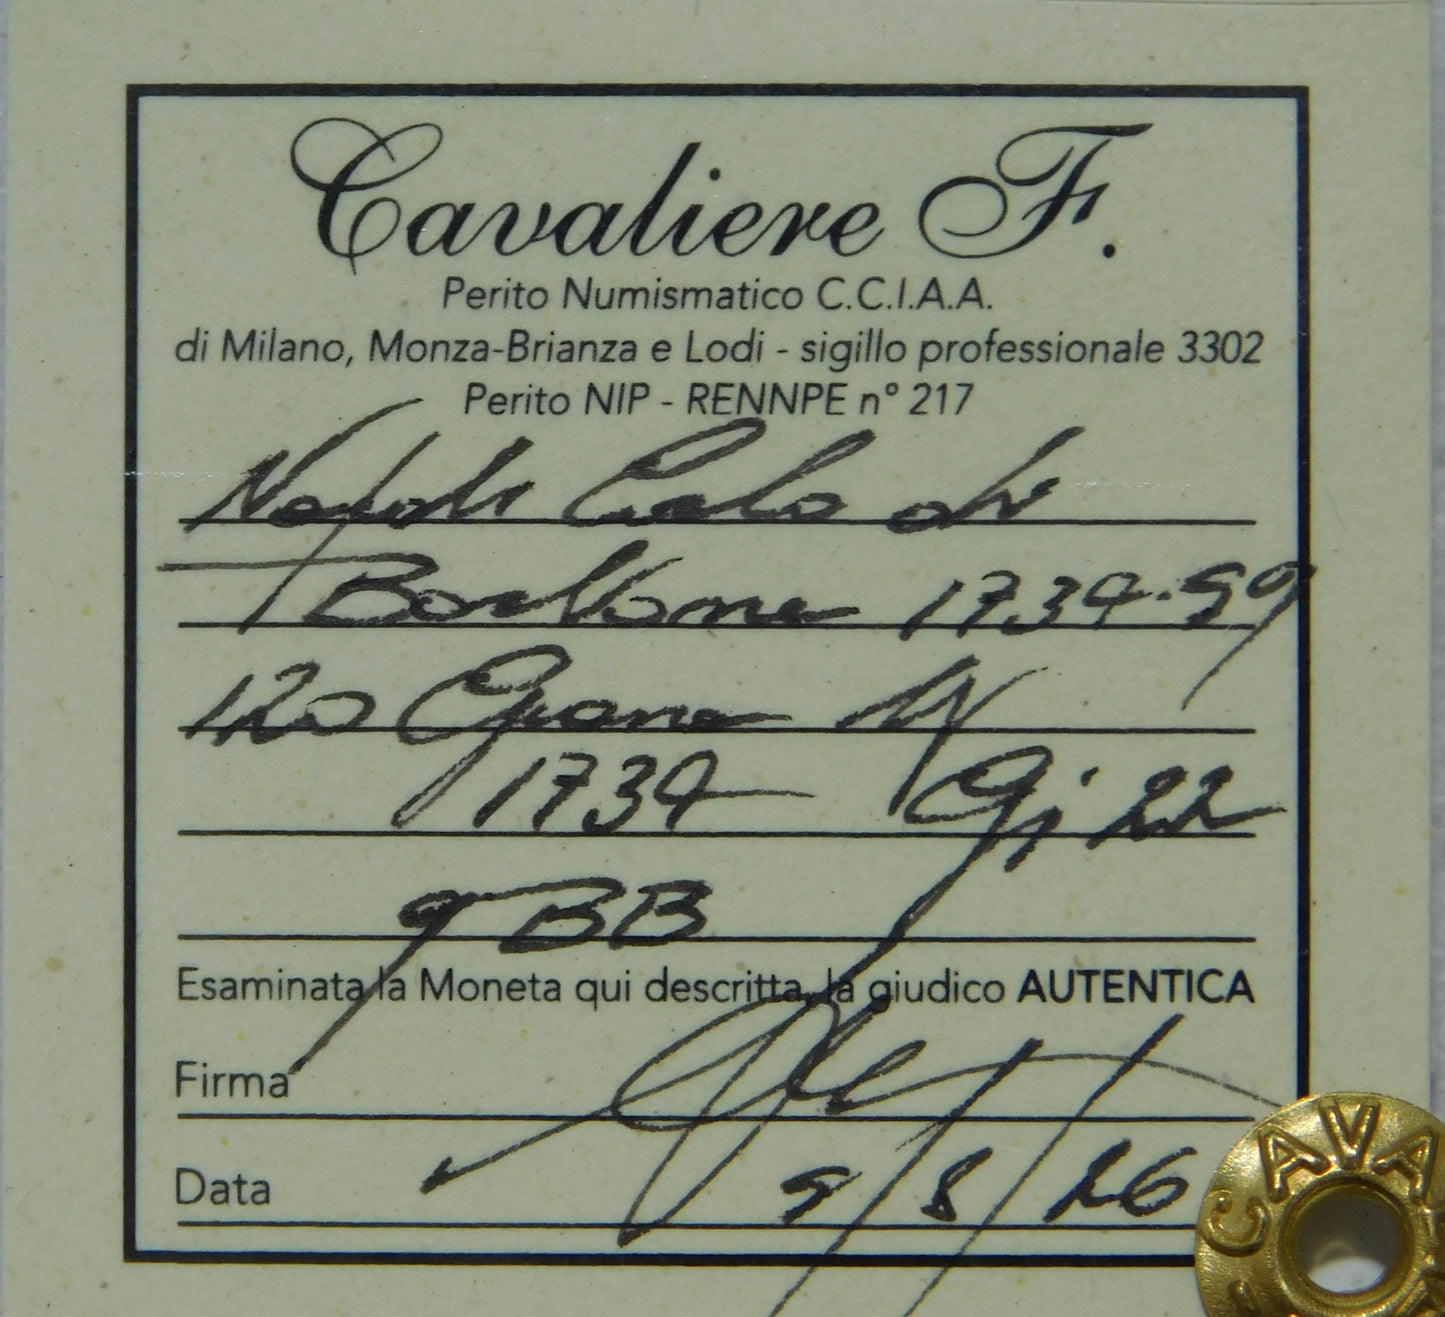 Cavaliere F.
Perito Numismatico C.C.I.A.A.
di Milano, Monza-Brianza e Lodi - sigillo professionale 3302
Perito NIP - RENNPE n° 217
Napoli Carlo di
Borbone 1734-59
120 Grana
1734 Gi 22
qBB
Esaminata la Moneta qui descritta, la giudico AUTENTICA
Firma
Data 9/8/26
CAVA